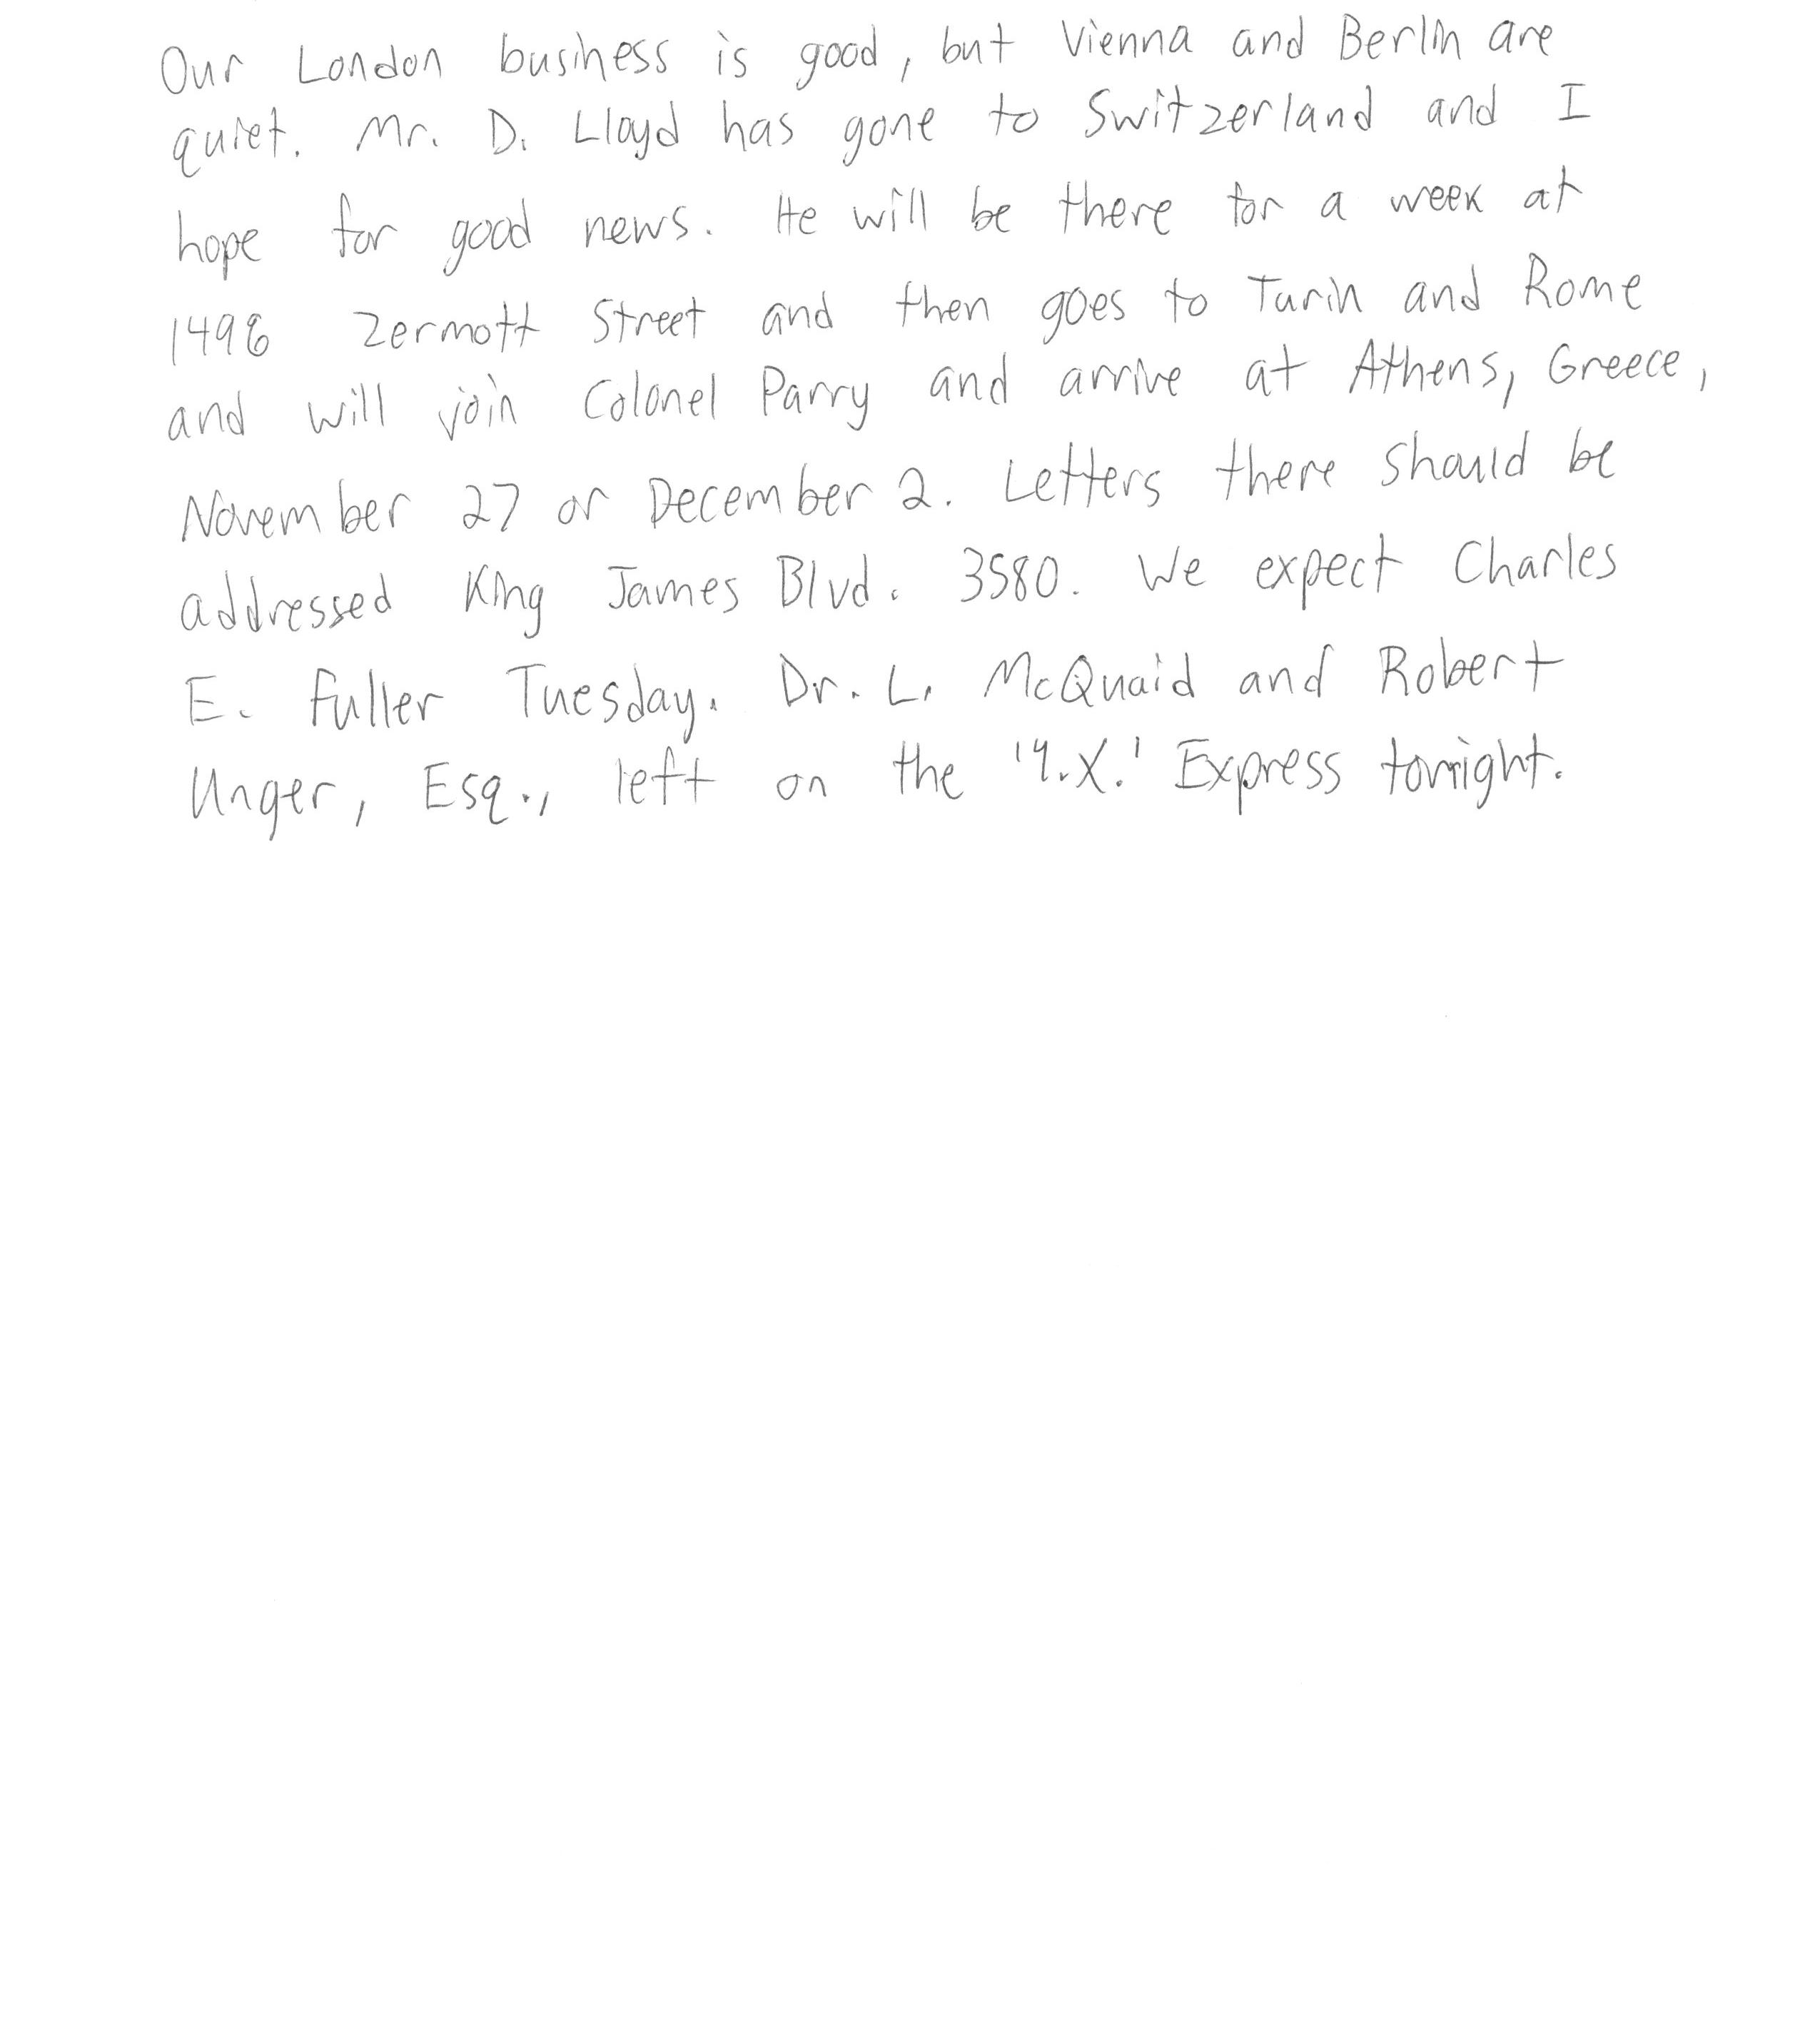 Our London business is good, but Vienna and Berlin are
quiet. Mr. D. Lloyd has gone to Switzerland and I
hope for good news. He will be there for a week at
1496 Zermott Street and then goes to Turin and Rome
and will join Colonel Parry and arrive at Athens, Greece,
November 27 or December 2. Letters there should be
addressed King James Blvd. 3580. We expect Charles
E. Fuller Tuesday. Dr. L. McQuaid and Robert
Unger, Esq., left on the '9.X.' Express tonight.